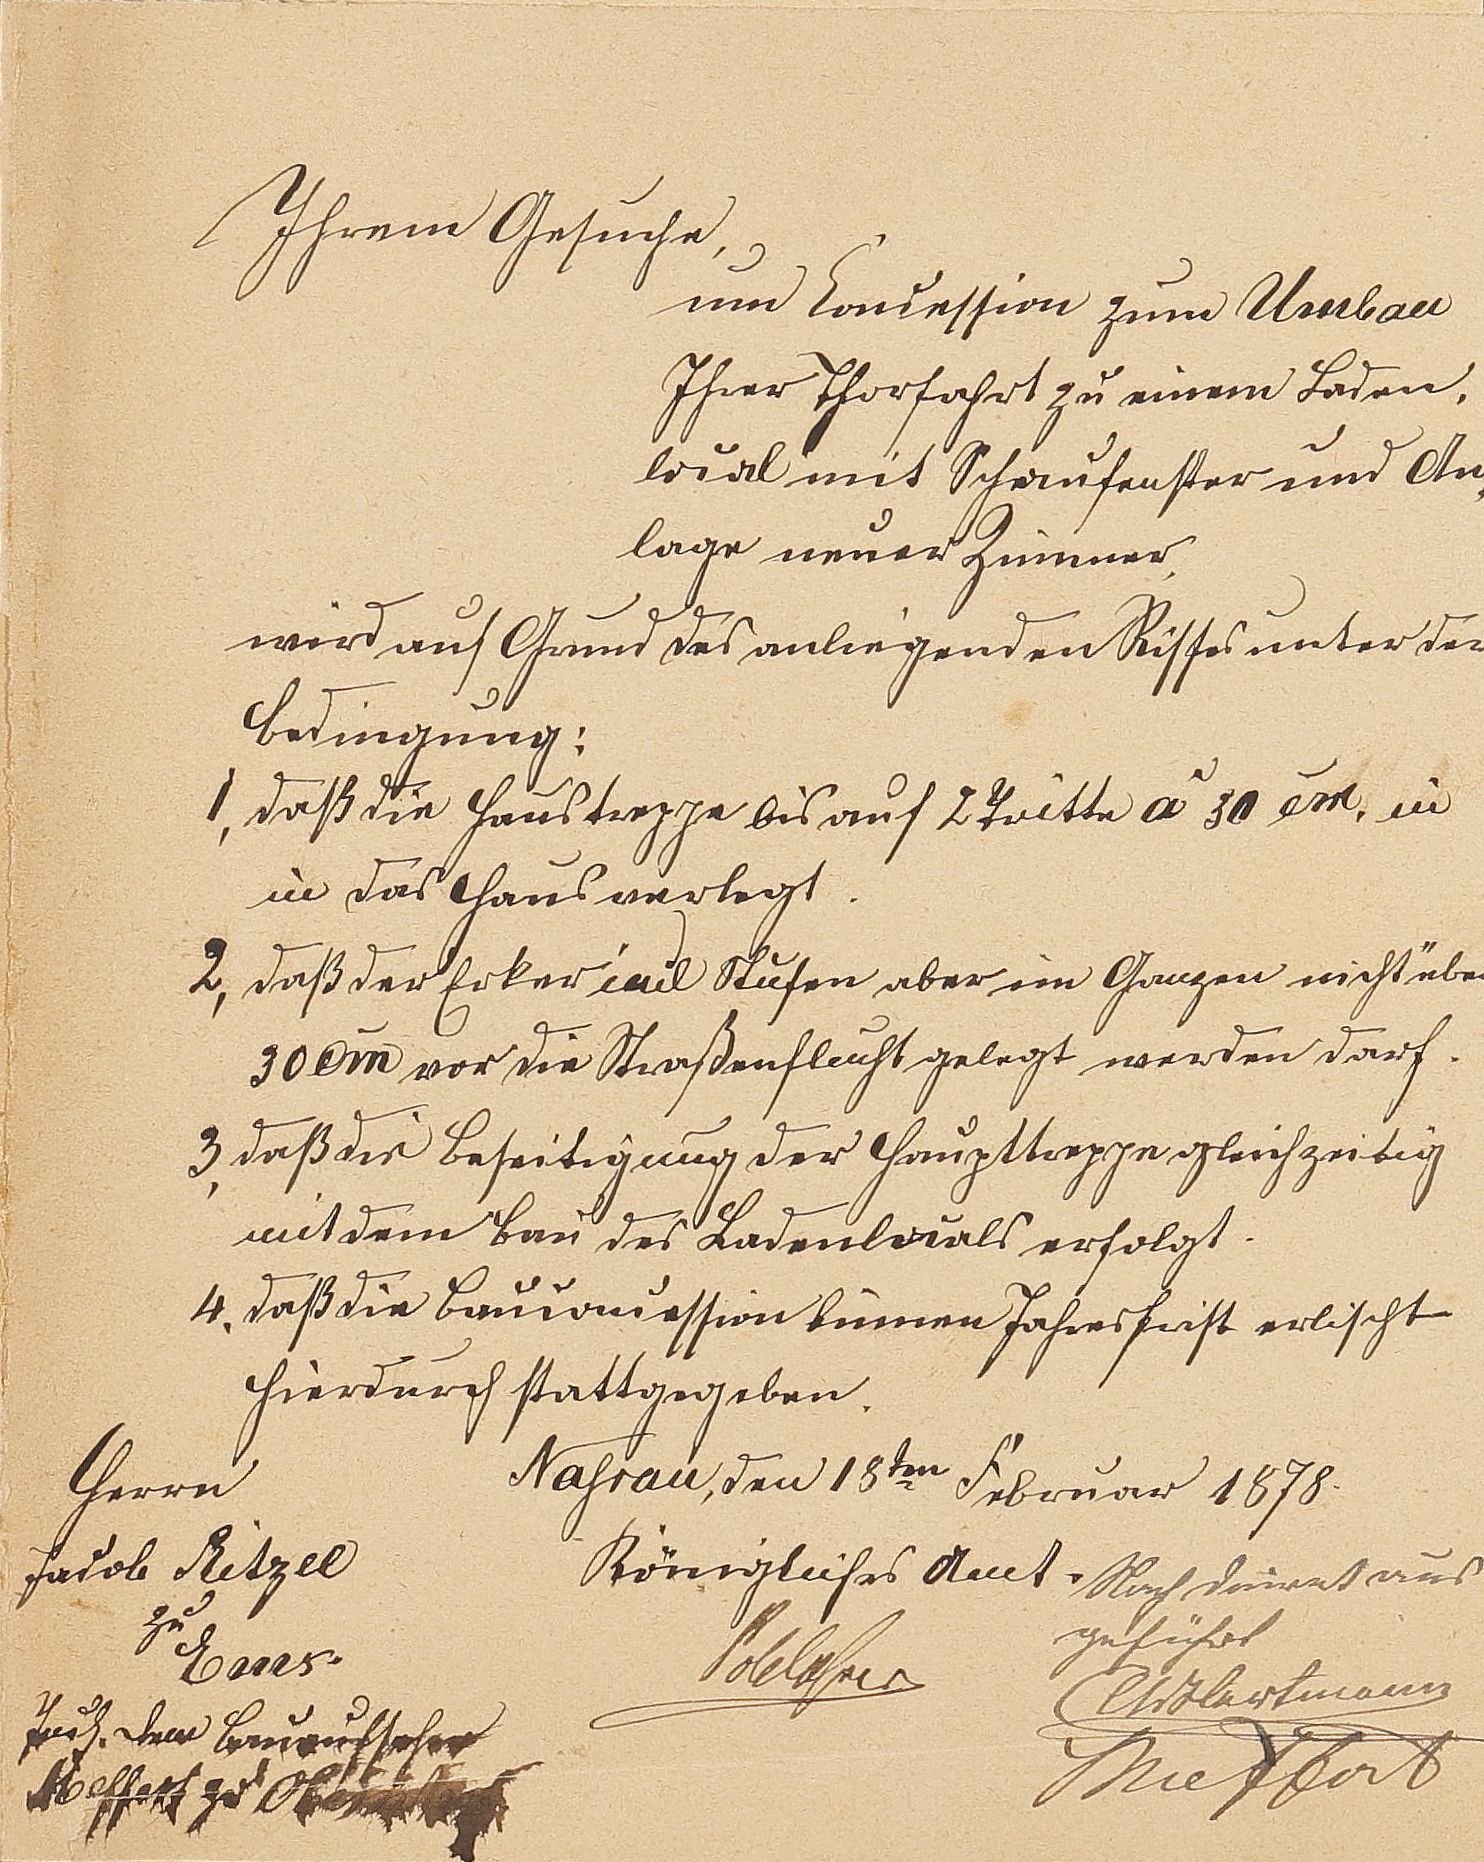 Ihrem Gesuche,
um Concession zum Umbau
Ihrer Thorfahrt zu einem Laden,
local mit Schaufenster und An,
lage neuer Zimmer,
wird auf Grund des anliegenden Risses unter der
Bedingung:
1, daß die Haustreppe bis auf 2 Tritte a 30 cm. in
in das Haus verlegt.
2, daß der Erker incl Stufen aber im Ganzen nicht über
30 cm vor die Straßenflucht gelegt werden darf.
3, daß die Beseitigung der Haupttreppe gleichzeitig
mit dem Bau des Ladenlocals erfolgt.
4. daß die Bauconcession binnen Jahresfrist erlischt
hierdurch stattgegeben.
Nassau, den 18ten Februar 1878.
Königliches Amt.
Herrn
Jacob Ritzel
zu
Ems.
dem Bauaufseher
Meffert zu
Nach aus
geführt